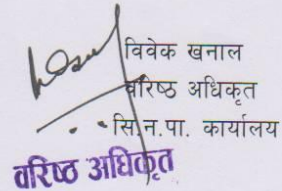 विवेक खनाल
वरिष्ठ अधिकृत
सि.न.पा. कार्यालय
वरिष्ठ अधिकृत